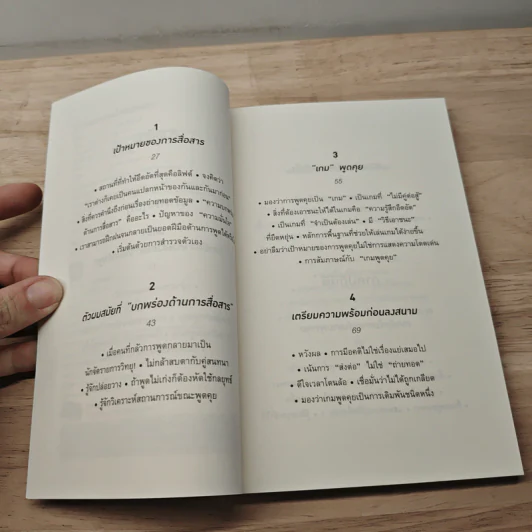 1
เป้าหมายของการสื่อสาร
27
• สถานที่ที่ทำให้อึดอัดที่สุดคือลิฟต์ • จงคิดว่า
"เราต่างก็เคยเป็นคนแปลกหน้าของกันและกันมาก่อน"
• สิ่งที่ควรคำนึงถึงก่อนเรื่องถ่ายทอดข้อมูล •
ด้านการสื่อสาร" คืออะไร • ปัญหาของ
• เราสามารถฝึกฝนจนกลายเป็นยอดฝีมือด้านการพูดได้
• เริ่มต้นด้วยการสำรวจตัวเอง
2
ตัวผมสมัยที่ "บกพร่องด้านการสื่อสาร"
43
• เมื่อคนที่กลัวการพูดกลายมาเป็น
นักจัดรายการวิทยุ! • ไม่กล้าสบตากับคู่สนทนา
• รู้จักปล่อยวาง • ถ้าพูดไม่เก่งก็ต้องหัดใช้กลยุทธ์
• รู้จักวิเคราะห์สถานการณ์ขณะพูดคุย
3
"เกม" พูดคุย
55
• มองว่าการพูดคุยเป็น "เกม" • เป็นเกมที่ "ไม่มีคู่ต่อสู้"
• สิ่งที่ต้องเอาชนะให้ได้ในเกมคือ "ความรู้สึกอึดอัด"
• เป็นเกมที่ "จำเป็นต้องเล่น" • มี "วิธีเอาชนะ"
ที่ยืดหยุ่น • หลักการพื้นฐานที่ช่วยให้เล่นเกมได้ง่ายขึ้น
• อย่าลืมว่าเป้าหมายของการพูดคุยไม่ใช่การแสดงความโดดเด่น
• การสัมภาษณ์กับ "เกมพูดคุย"
4
เตรียมความพร้อมก่อนลงสนาม
69
• หวังผล • การมีอคติไม่ใช่เรื่องแย่เสมอไป
• เน้นการ "ส่งต่อ" ไม่ใช่ "ถ่ายทอด"
• ดีใจเวลาโดนล้อ • เชื่อมั่นว่าไม่ได้ถูกเกลียด
• มองว่าเกมพูดคุยเป็นการเดิมพันชนิดหนึ่ง